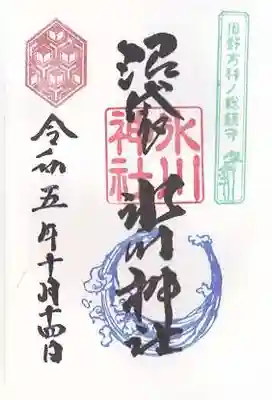 旧野方村ノ総鎮守
沼袋
氷川神社
氷川
神社
令和五年十月十四日